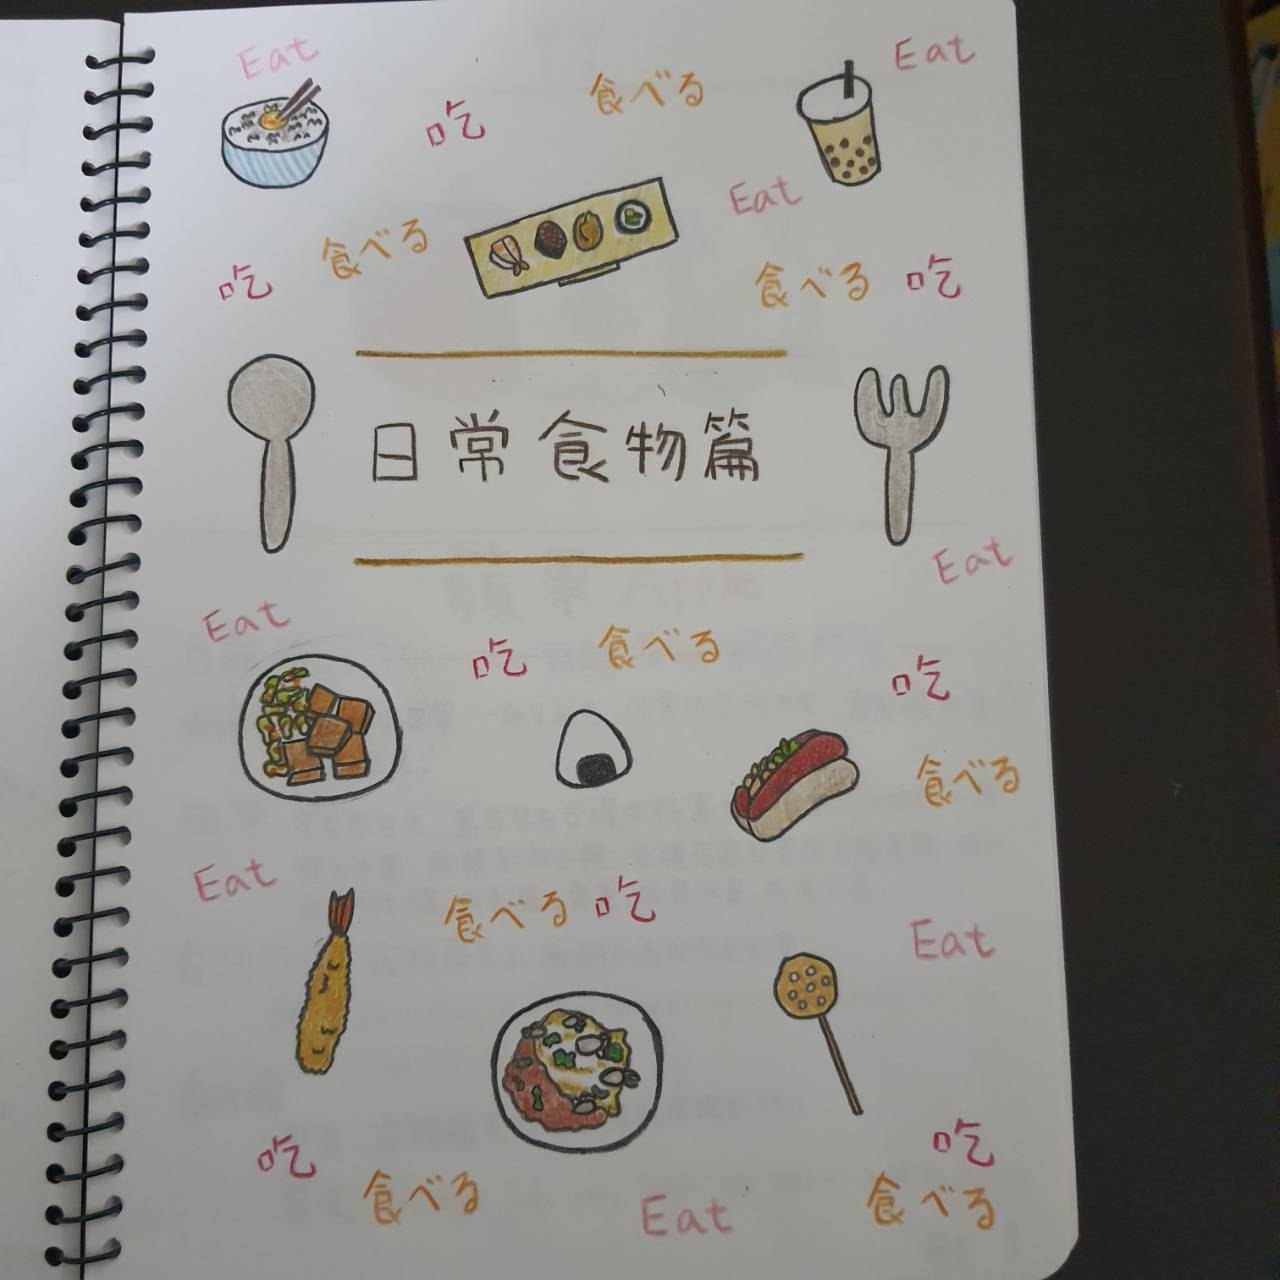 Eat
Eat
吃
食べる
Eat
食べる
吃
食べる 吃
日常食物篇
Eat
Eat
吃
食べる
吃
食べる
Eat
食べる 吃
Eat
吃
吃
食べる
Eat
食べる